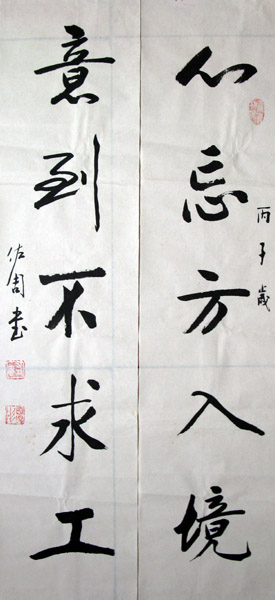 心忘方入境
丙子歲
意到不求工
佐周書